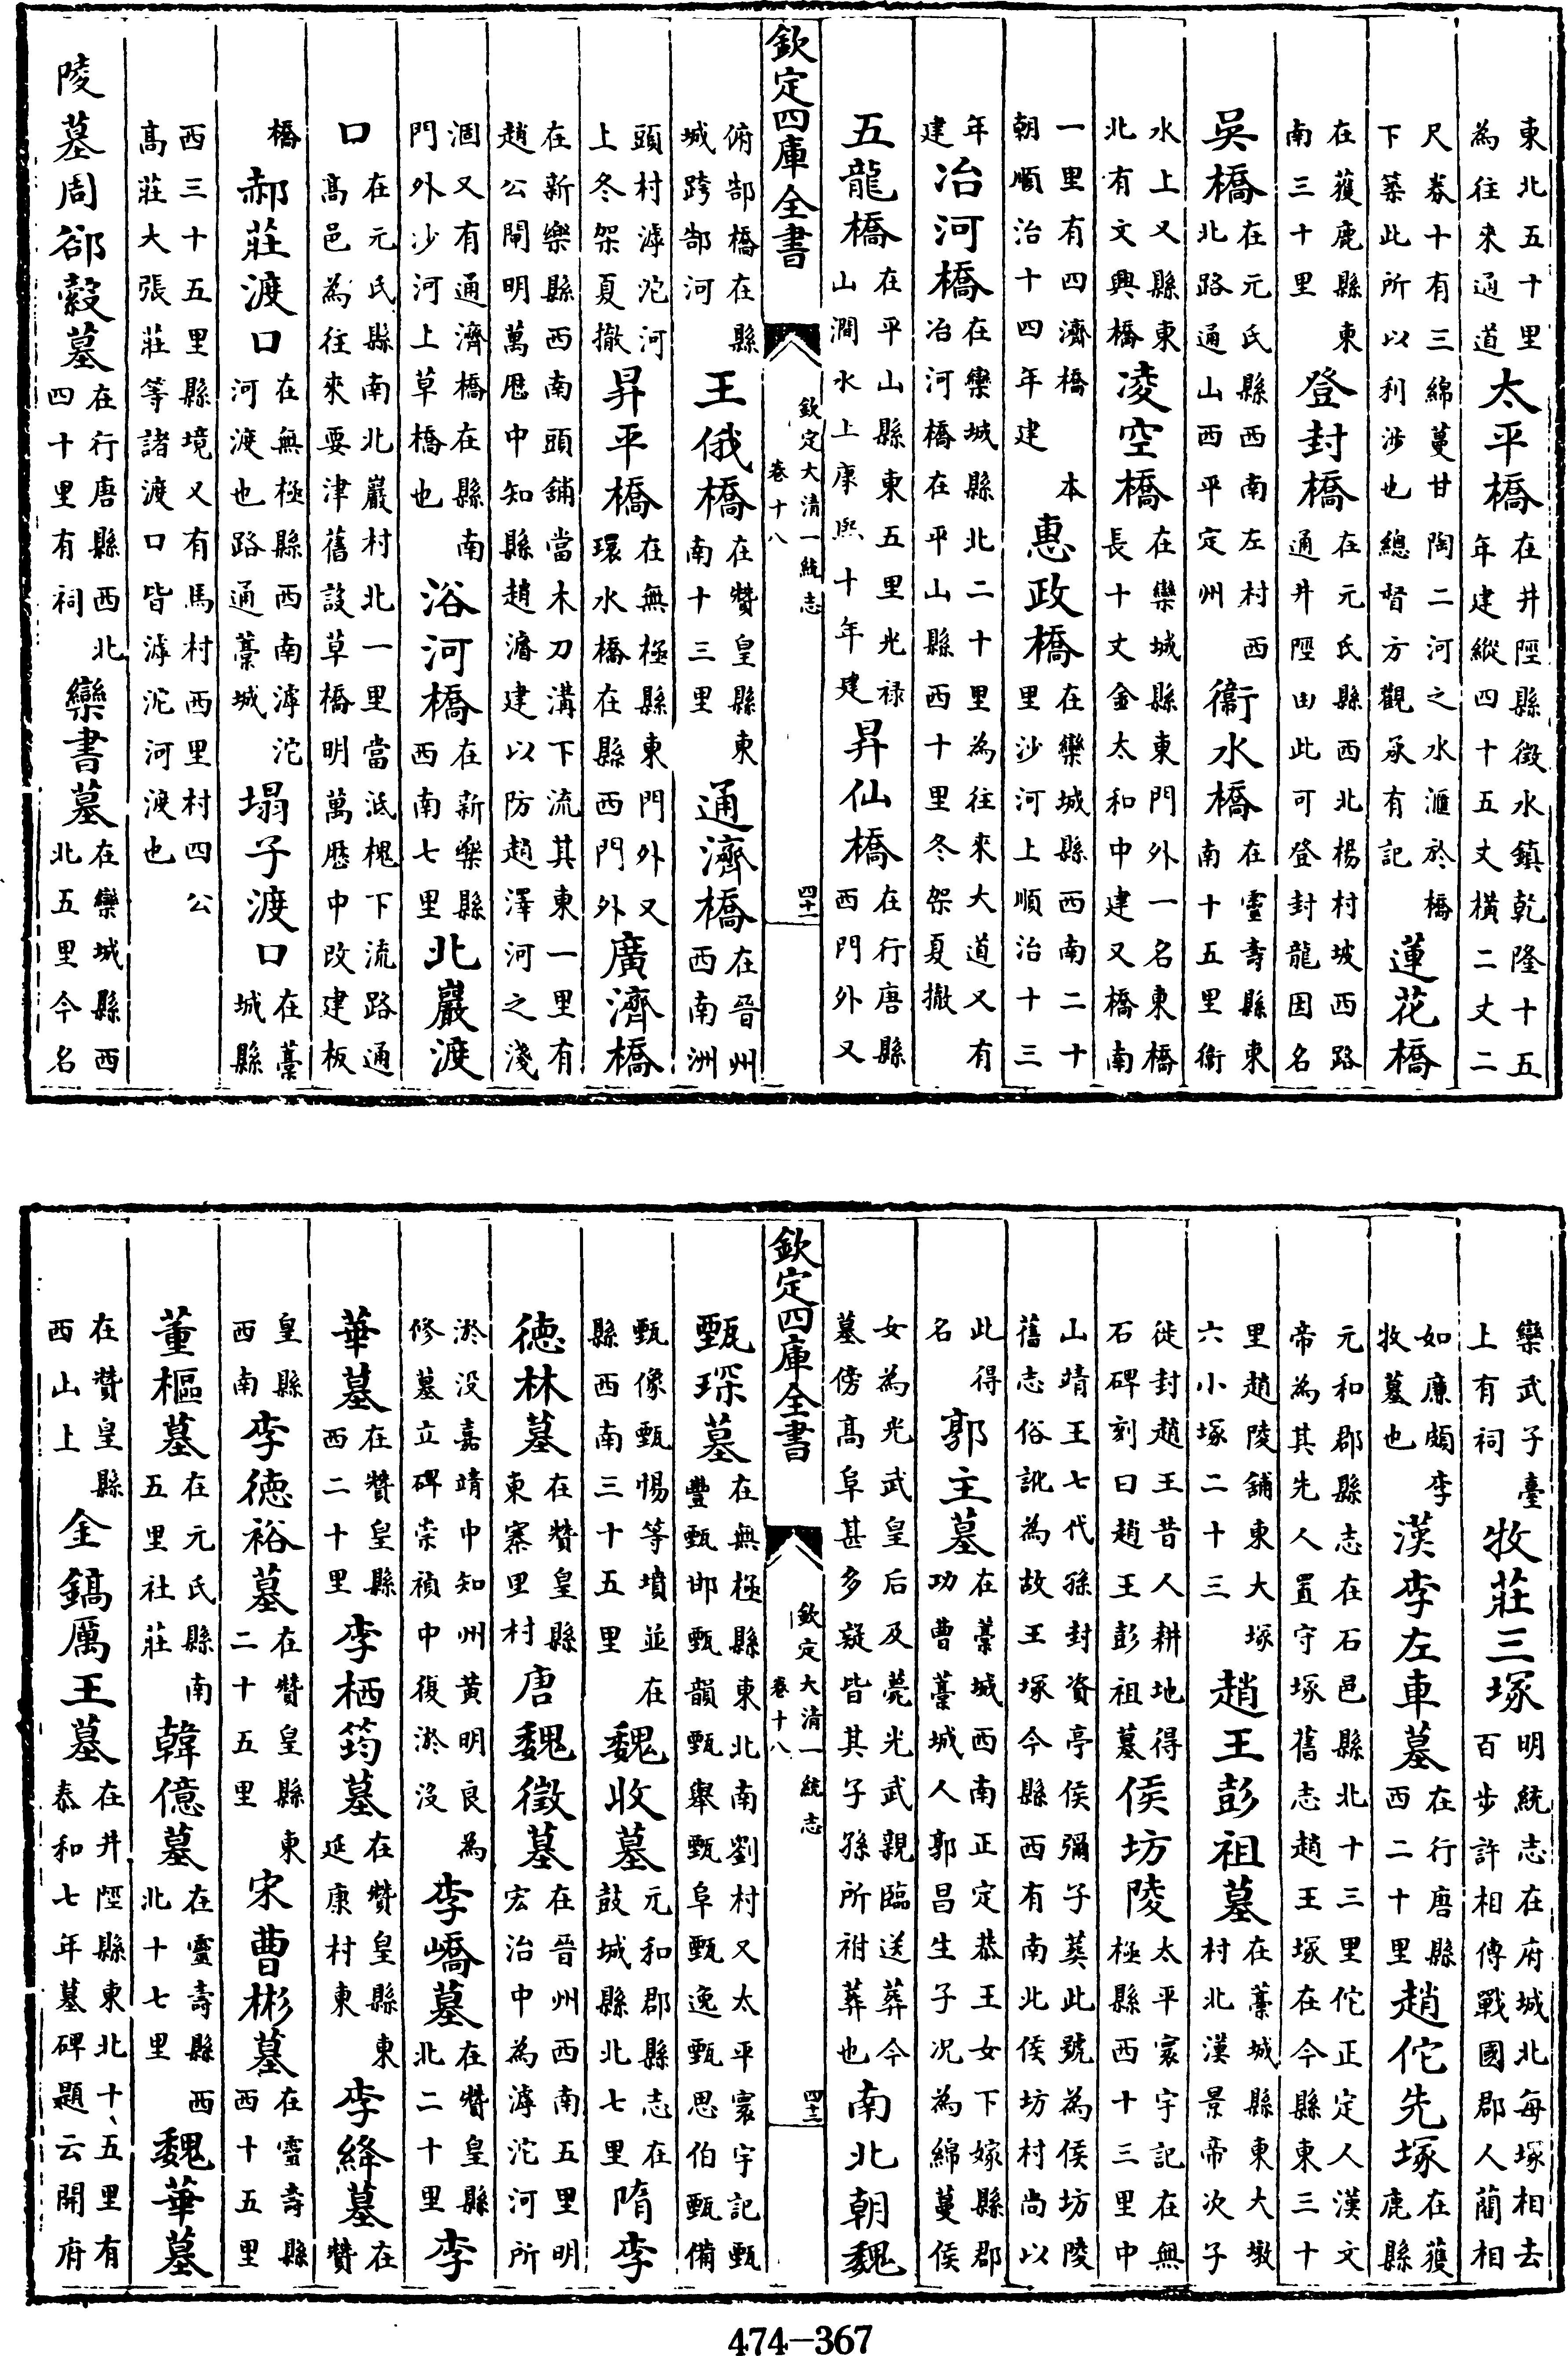 東北五十里為往來通道太平橋在井陘縣徵水鎮乾隆十五年建縱四十五丈橫二丈二
尺券十有三綿蔓甘陶二河之水滙於橋下築此所以利涉也總督方觀承有記蓮花橋
在獲鹿縣東南三十里登封橋在元氏縣西北楊村坡西路通井陘由此可登封龍因名
吳橋在元氏縣西南左村西北路通山西平定州衞水橋在靈壽縣東南十五里衞
水上又縣東北有文興橋凌空橋在欒城縣東門外一名東橋長十丈金太和中建又橋南
一里有四濟橋本朝順治十四年建惠政橋在欒城縣西南二十里沙河上順治十三
年建冶河橋在欒城縣北二十里為往來大道又有冶河橋在平山縣西十里冬架夏撤
五龍橋在平山縣東五里光禄山澗水上康熙十年建昇仙橋在行唐縣西門外又
欽定四庫全書 欽定大清一統志 卷十八 四十一
俯郜橋在縣城跨郜河王俄橋在贊皇縣東南十三里通濟橋在晉州西南洲
頭村滹沱河上冬架夏撤昇平橋在無極縣東門外又環水橋在縣西門外廣濟橋
在新樂縣西南頭舖當木刀溝下流其東一里有趙公閘明萬厯中知縣趙濬建以防趙澤河之淺
涸又有通濟橋在縣南門外沙河上草橋也浴河橋在新樂縣西南七里北巖渡
口在元氏縣南北巖村北一里當泜槐下流路通高邑為往來要津舊設草橋明萬厯中改建板
橋郝莊渡口在無極縣西南滹沱河渡也路通藁城塌子渡口在藁城縣
西三十五里縣境又有馬村西里村四公高莊大張莊等諸渡口皆滹沱河渡也
陵墓周郤縠墓在行唐縣西北四十里有祠欒書墓在欒城縣西北五里今名
欒武子臺上有祠牧莊三塚明統志在府城北每塚相去百步許相傳戰國郡人藺相
如廉頗李牧墓也漢李左車墓在行唐縣西二十里趙佗先塚在獲鹿縣
元和郡縣志在石邑縣北十三里佗正定人漢文帝為其先人置守塚舊志趙王塚在今縣東三十
里趙陵舖東大塚六小塚二十三趙王彭祖墓在藁城縣東大墩村北漢景帝次子
徙封趙王昔人耕地得石碑刻曰趙王彭祖墓侯坊陵太平寰宇記在無極縣西十三里中
山靖王七代孫封資亭侯彌子葬此號為侯坊陵舊志俗訛為故王塚今縣西有南北侯坊村尚以
此得名郭主墓在藁城西南正定恭王女下嫁縣郡功曹藁城人郭昌生子况為綿蔓侯
女為光武皇后及薨光武親臨送葬今墓傍高阜甚多疑皆其子孫所祔葬也南北朝魏
欽定四庫全書 欽定大清一統志 卷十八 四十二
甄琛墓在無極縣東北南劉村又太平寰宇記甄豐甄邯甄韻甄舉甄阜甄逸甄思伯甄備
甄像甄惕等墳並在縣西南三十五里魏收墓元和郡縣志在鼓城縣北七里隋李
德林墓在贊皇縣東寨里村唐魏徵墓在晉州西南五里明宏治中為滹沱河所
淤没嘉靖中知州黃明良為修墓立碑崇禎中復淤沒李嶠墓在贊皇縣北二十里李
華墓在贊皇縣西二十里李栖筠墓在贊皇縣東延康村東李絳墓在贊
皇縣西南李德裕墓在贊皇縣東二十五里宋曹彬墓在靈壽縣西十五里
董樞墓在元氏縣南五里社莊韓億墓在靈壽縣西北十七里魏華墓
在贊皇縣西山上金鎬厲王墓在井陘縣東北十五里有泰和七年墓碑題云開府
474-367